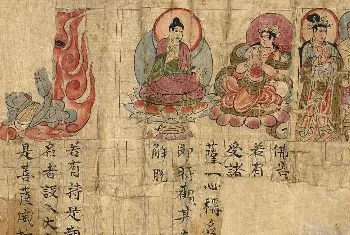 佛告
若有
受諸
薩一心稱
即時觀其
解脫
若有持是
名者設入大
是菩薩威